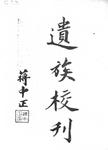 遺族校刊
蔣中正